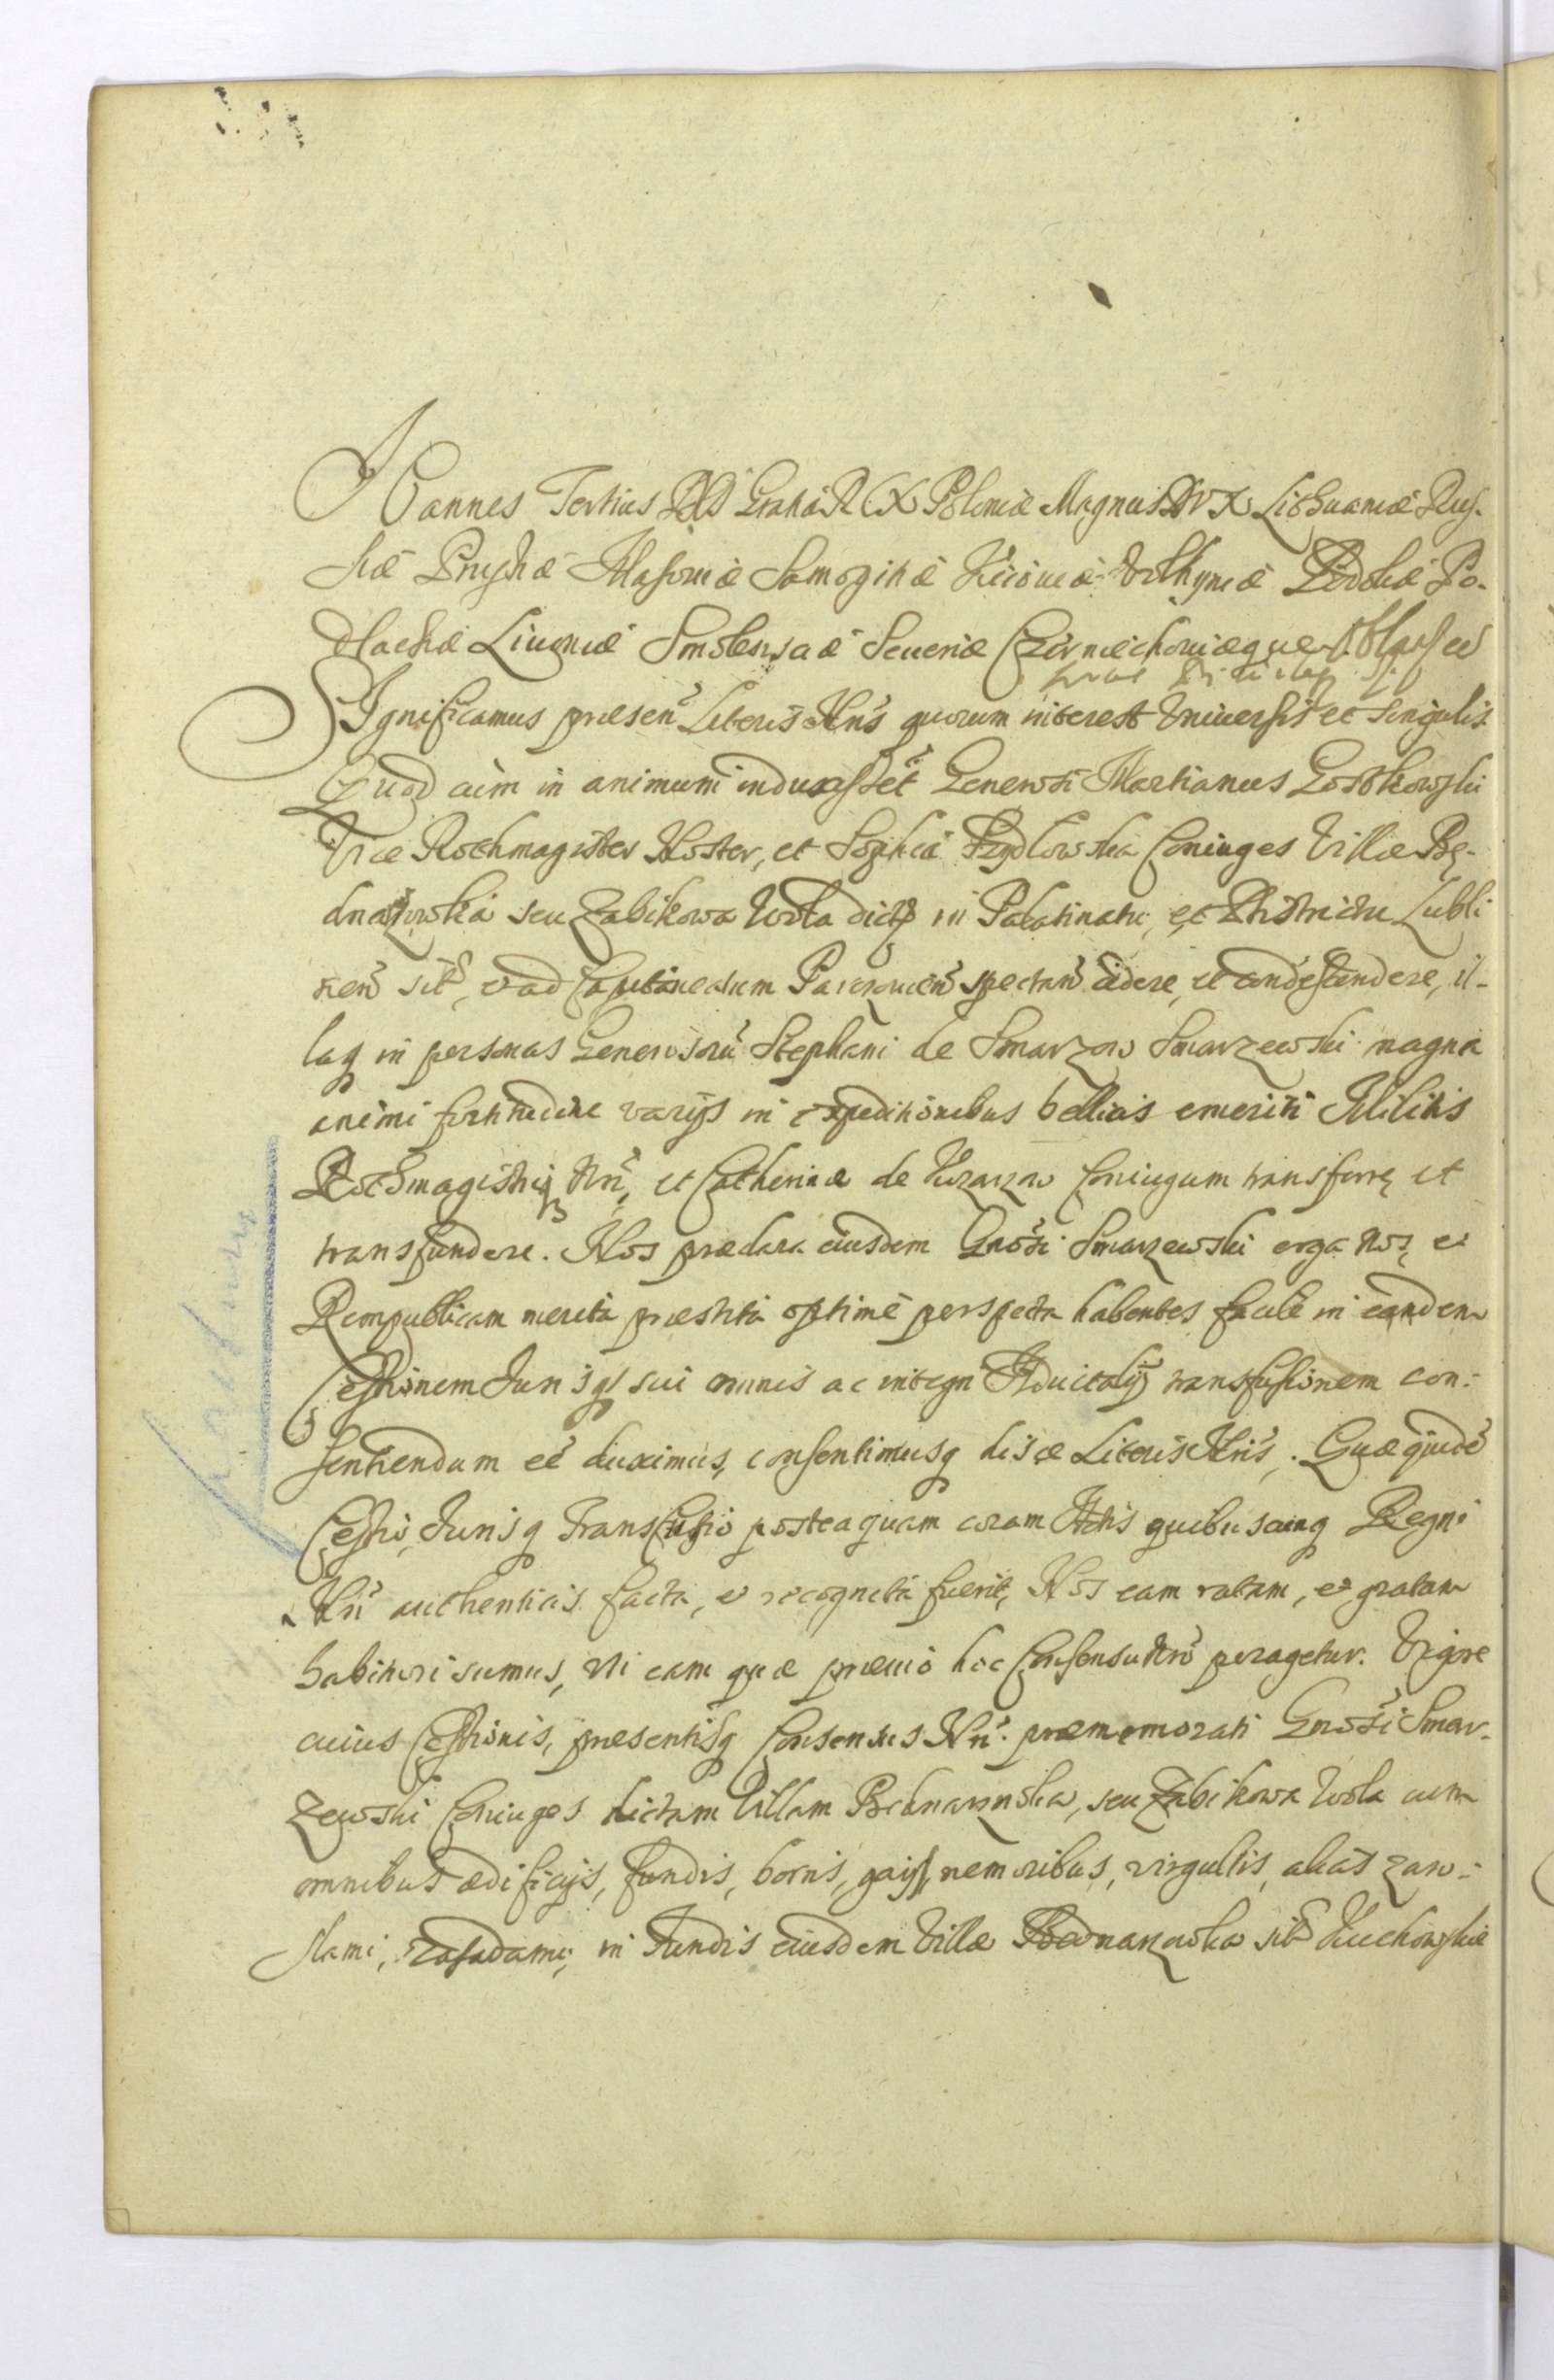 Joannes Tertius DEI Gratia REX Poloniæ Magnus DVX Lithuaniæ Rus-
siæ Prussiæ Masoviæ Samogitiæ Kiioviæ Volhyniæ Podoliæ Po-
dlachiæ Livoniæ Smolensciæ Severiæ Czerniechoviæque
Significamus præsen̄ Literis Nr̄is quorum interest Universis et singulis
Quod cùm in animum induxissēt Generosi Martianus Gostkowski
Rothmagister Noster, et Sophia Szydlowska Coniuges Villæ Be-
dnarzowska seu Zabikowa Wola dictæ in Palatinatu, et Districtu Lubli
nen̄ sit̄, et ad Capitaneatum Parczovien̄ spectan̄ cedere, et condescendere, il-
lāq in personas Generosorū Stephani de Smarzow Smarzewski magna
animi fortitudine varijs in expeditionibus bellicis emeriti Militis
Rothmagistri Nr̄i, et Catherinæ de Coniugum transferre et
transfundere. Nos præclara eiusdem Gnōsi Smarzewski erga Nos, et
Rempublicam merita præstita optimè perspecta habentes facilè in eandem
Cessionem Jurisq sui omnis ac integri Advitalis transfusionem con-
sentiendum eē duximus, consentimusq hisce Literis Nr̄is. Quæ quidē
Cessio, Jurisq Transfusio posteaquam coram Actis quibuscunq Regni
Nr̄i authenticis facta, et recognita fuerit, Nos eam ratam, et gratam
habituri sumus, uti eam quæ prævio hoc Consensu Nr̄o peragetur. Vigore
cuius Cessionis, præsentisq Consensus Nr̄i. præmemorati Gnōsi Smar-
zewski Coniuges dictam Villam Bednarzowska, seu Zabikowa Wola cum
omnibus ædificijs, fundis, hortis, gaijs, nemoribus, virgultis, alias zaro-
slami, zasadami, in Fundis eiusdem Villæ Bednarzowska sit̄